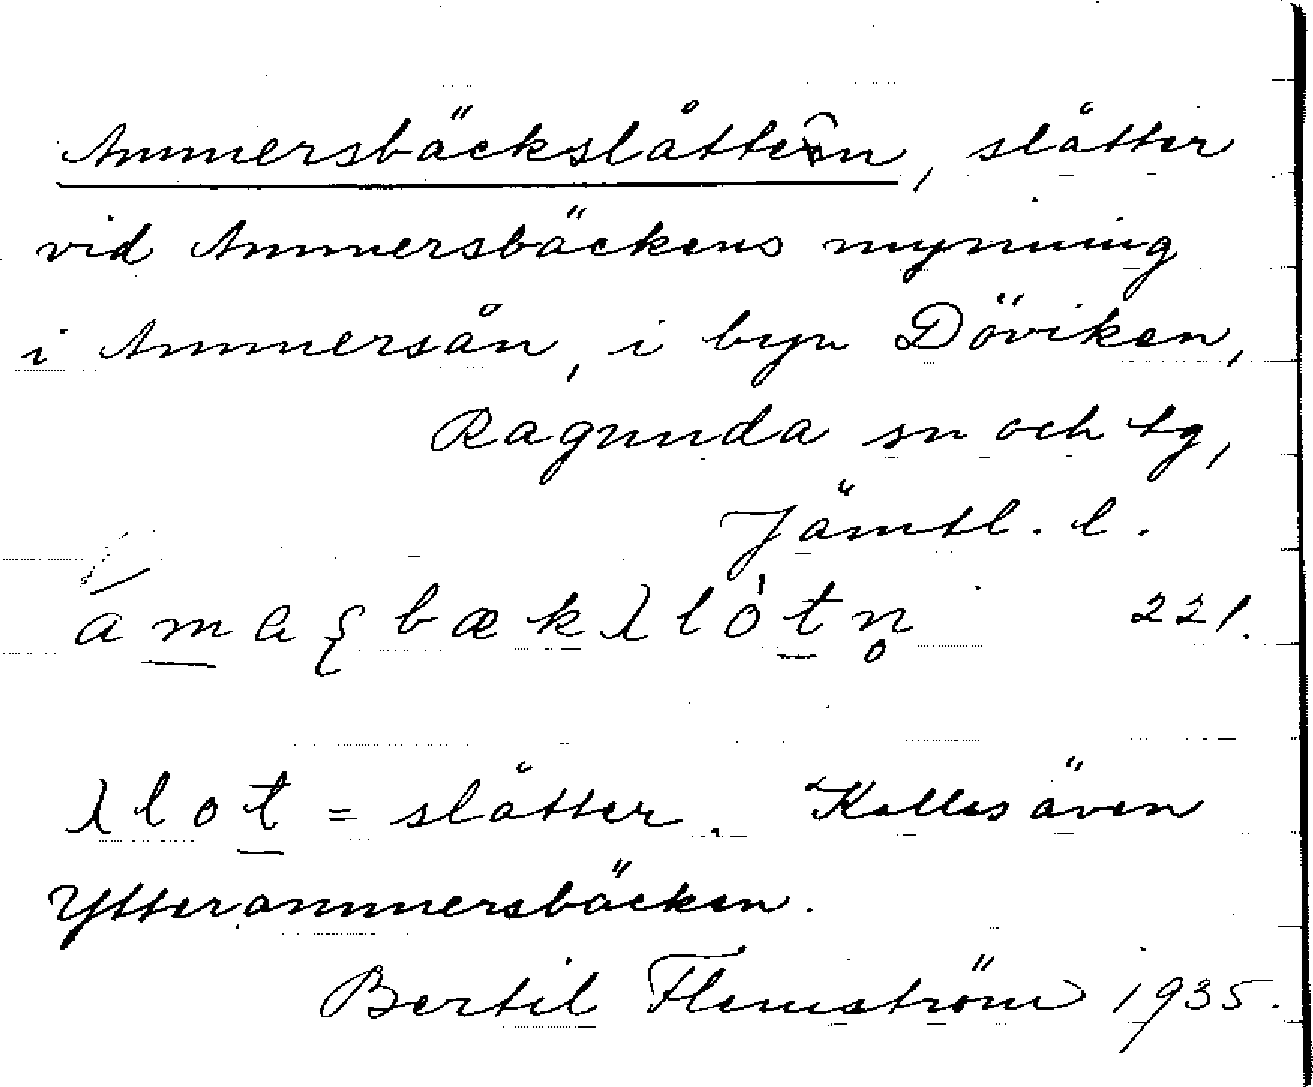 Ammersbäckslåtten, slåtter
vid Ammersbäckens mynning
i Ammersån, i byn Döviken,
Ragunda sn och tg,
Jämtl. l.
221.
= slåtter. Kallas även
Ytterammersbäcken.
Bertil Flemström 1935.